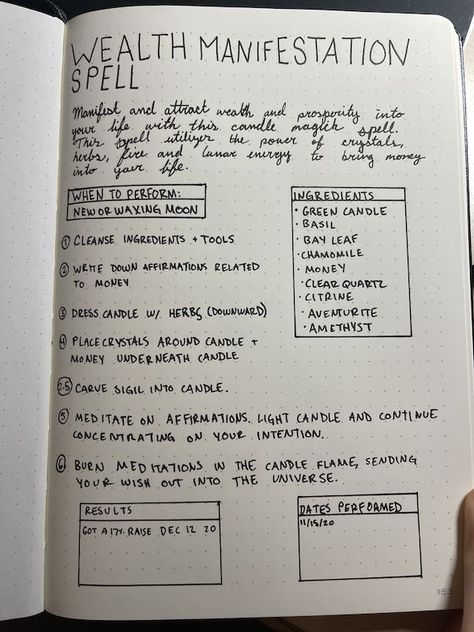 WEALTH MANIFESTATION
SPELL
Manifest and attract wealth and prosperity into
your life with this candle magick spell.
This spell utilizes the power of crystals,
herbs, fire and lunar energy to bring money
into your life.
WHEN TO PERFORM:
NEW OR WAXING MOON
INGREDIENTS
· GREEN CANDLE
· BASIL
· BAY LEAF
· CHAMOMILE
· MONEY
· CLEAR QUARTZ
· CITRINE
· AVENTURITE
· AMETHYST
① CLEANSE INGREDIENTS + TOOLS
② WRITE DOWN AFFIRMATIONS RELATED
TO MONEY
③ DRESS CANDLE W/ HERBS (DOWNWARD)
④ PLACE CRYSTALS AROUND CANDLE +
MONEY UNDERNEATH CANDLE
2.5 CARVE SIGIL INTO CANDLE.
⑤ MEDITATE ON AFFIRMATIONS. LIGHT CANDLE AND CONTINUE
CONCENTRATING ON YOUR INTENTION.
⑥ BURN MEDITATIONS IN THE CANDLE FLAME, SENDING
YOUR WISH OUT INTO THE UNIVERSE.
RESULTS
GOT A 17%. RAISE DEC 12 20
DATES PERFORMED
11/15/20
153